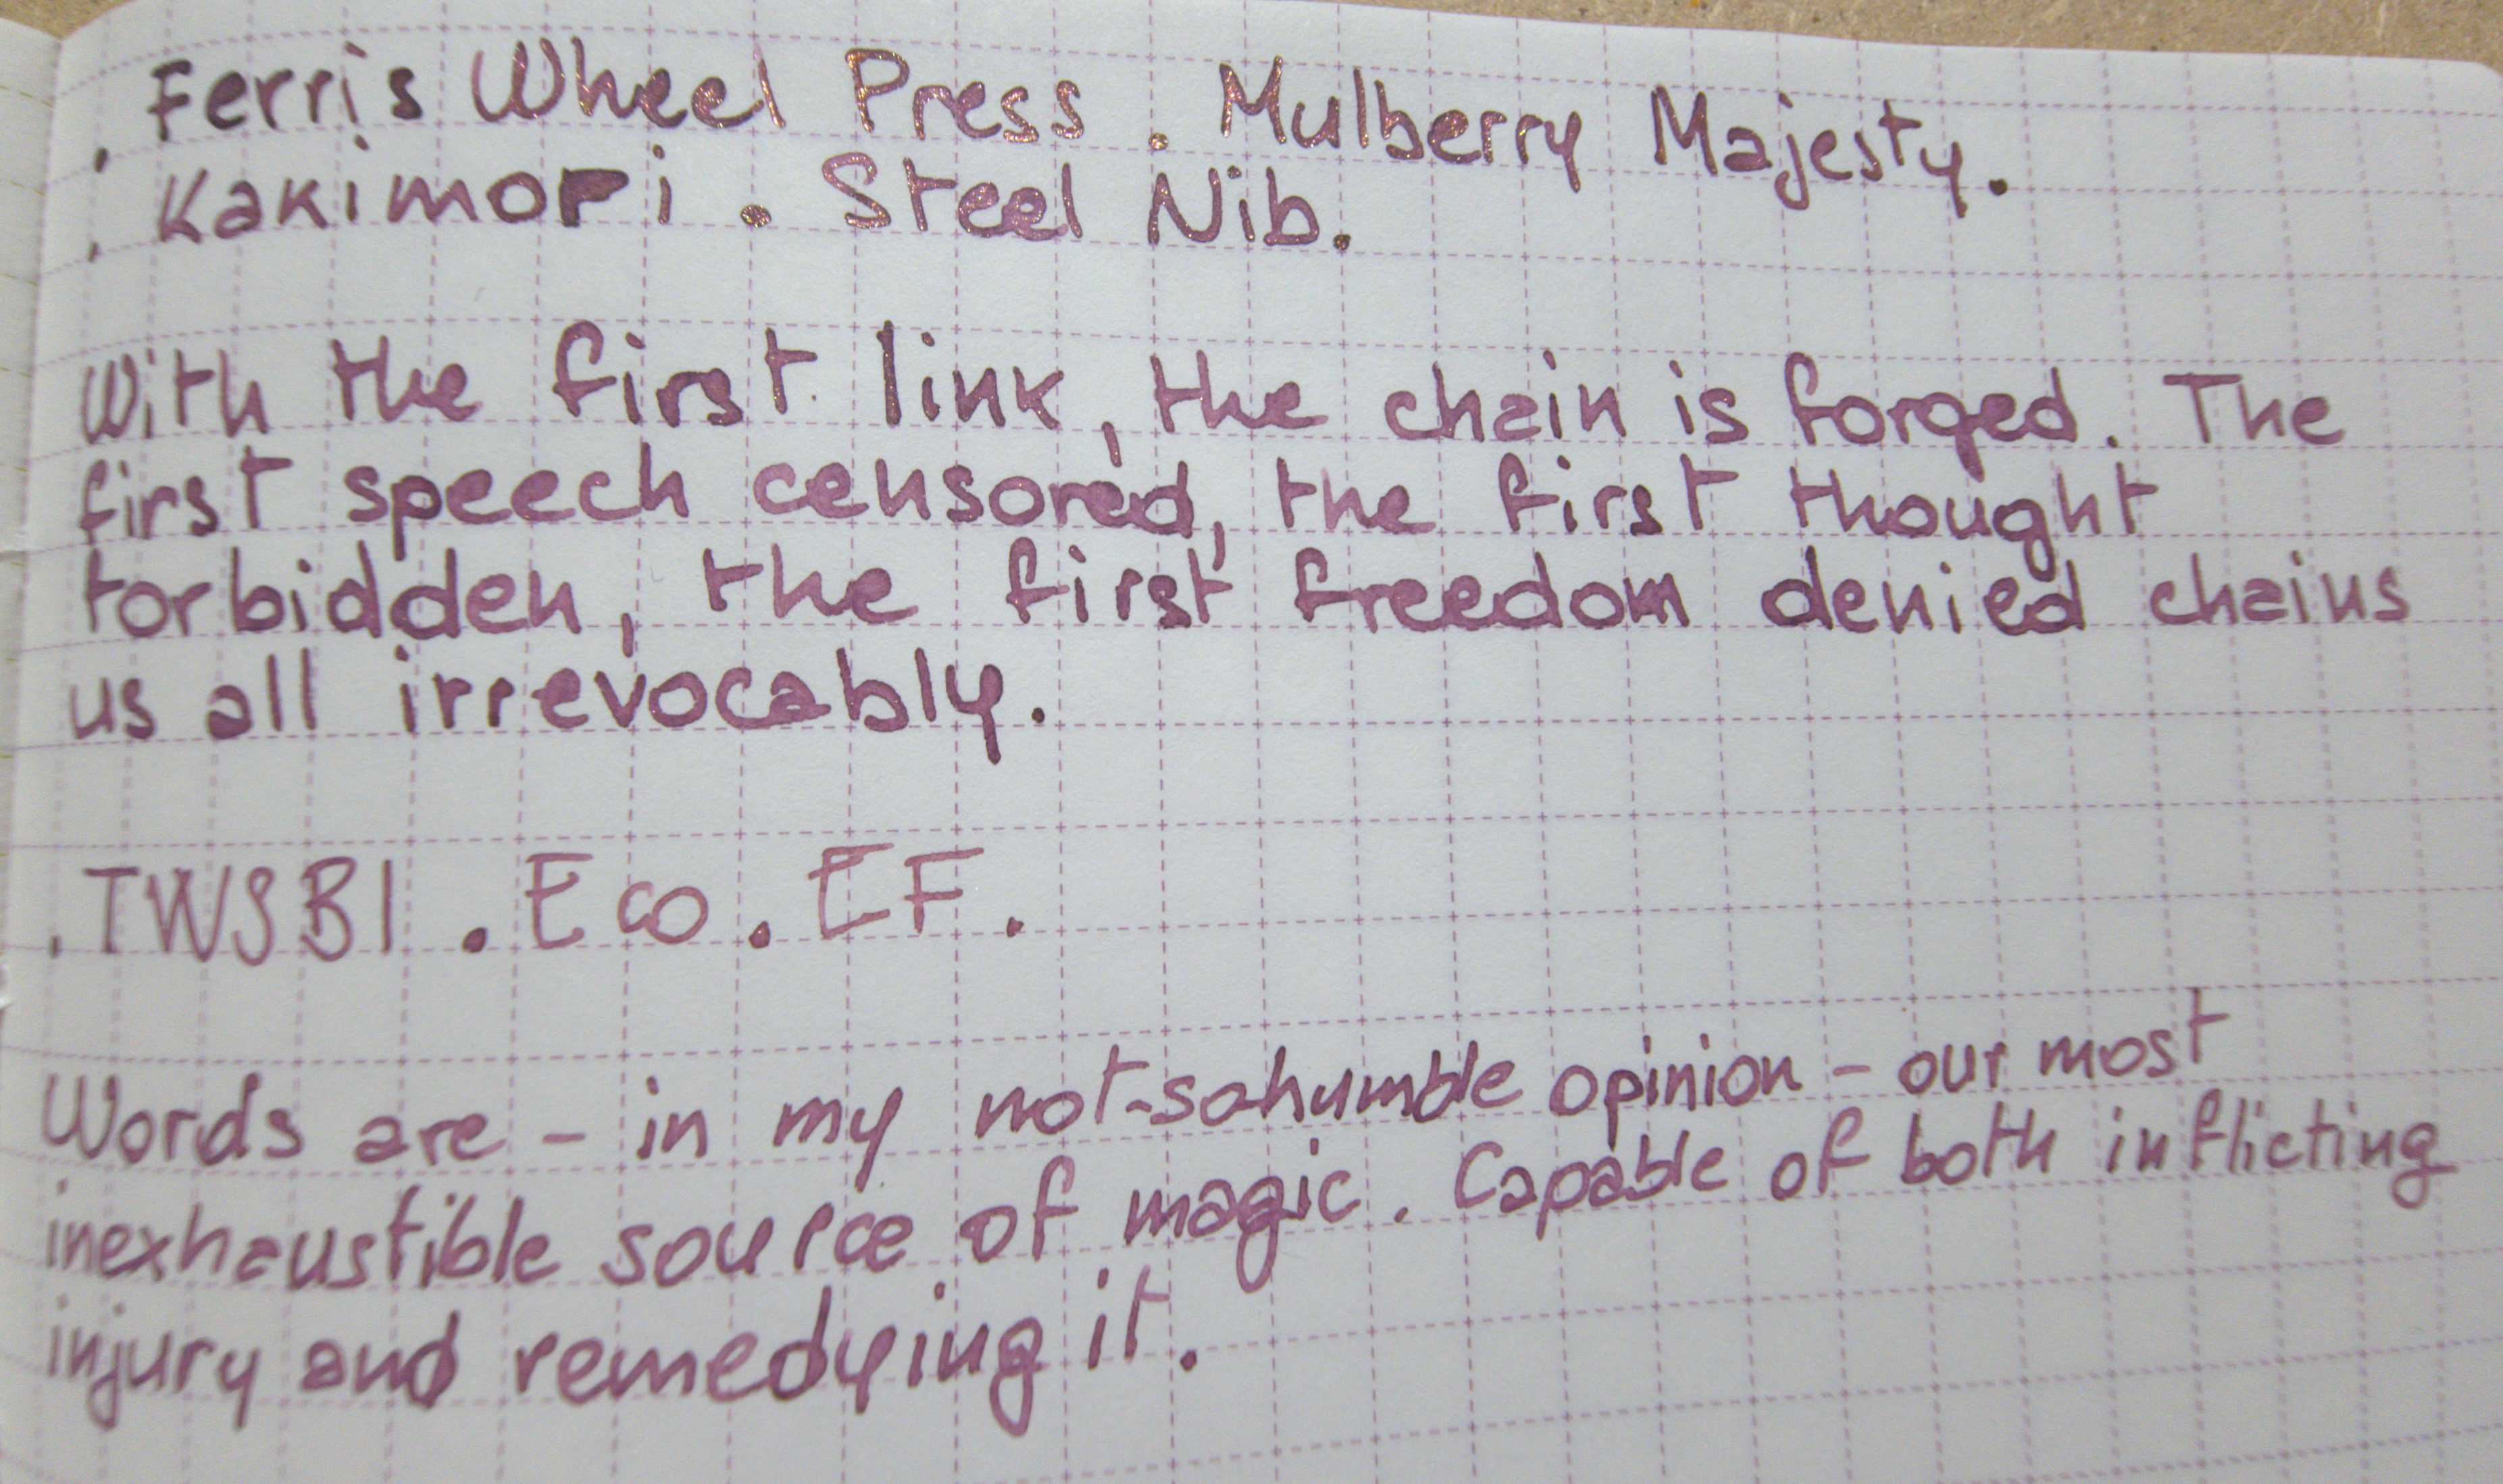 . Ferris Wheel Press . Mulberry Majesty.
. Kakimori . Steel Nib.
With the first link, the chain is forged. The
first speech censored, the first thought
forbidden, the first freedom denied chains
us all irrevocably.
. TWSBI . Eco . EF .
Words are - in my not-so-humble opinion - our most
inexhaustible source of magic. Capable of both inflicting
injury and remedying it.